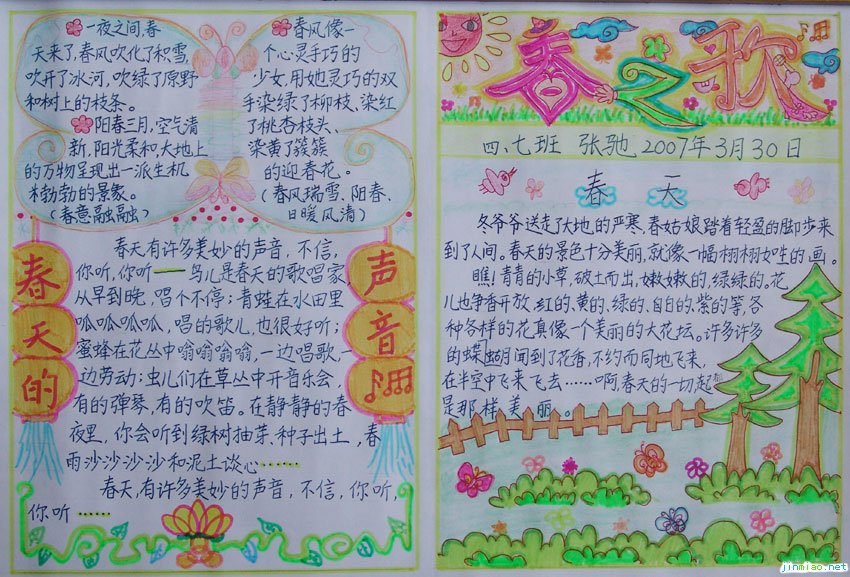 一夜之间,春
天来了,春风吹化了积雪,
吹开了冰河,吹绿了原野
和树上的枝条。
阳春三月,空气清
新,阳光柔和,大地上
的万物呈现出一派生机
勃勃的景象。
(春意融融)
春风像一
个心灵手巧的
少女,用她灵巧的双
手染绿了柳枝、染红
了桃杏枝头、
染黄了簇簇
的迎春花。
(春风瑞雪、阳春、
日暖风清)
春天的
声音
春天有许多美妙的声音,不信,
你听,你听——鸟儿是春天的歌唱家,
从早到晚,唱个不停;青蛙在水田里
呱呱呱呱,唱的歌儿,也很好听;
蜜蜂在花丛中嗡嗡嗡嗡,一边唱歌,一
边劳动;虫儿们在草丛中开音乐会,
有的弹琴,有的吹笛。在静静的春
夜里,你会听到绿树抽芽、种子出土,春
雨沙沙沙沙和泥土谈心……
春天,有许多美妙的声音,不信,你听,
你听……
春之歌
四.七班 张驰 2007年3月30日
春天
冬爷爷送走了大地的严寒,春姑娘踏着轻盈的脚步来
到了人间。春天的景色十分美丽,就像一幅栩栩如生的画。
瞧!青青的小草,破土而出,嫩嫩的,绿绿的。花
儿也争着开放,红的、黄的、绿的、白的、紫的等,各
种各样的花真像一个美丽的大花坛。许多许多
的蝶间到了花香,不约而同地飞来,
在半空中飞来飞去……啊,春天的一切起
是那样美丽。
jinmiao.net